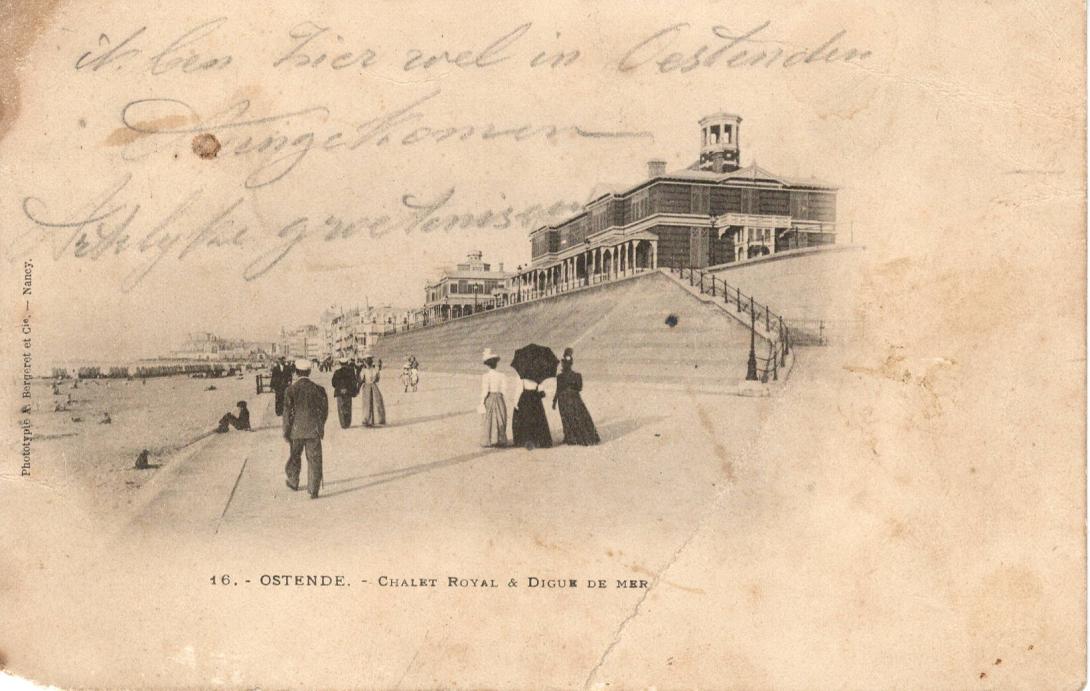 ik ben hier wel in Oestenden
Aangekomen
groetenissen
Phototypie A. Bergeret et Cie. — Nancy.
16. - OSTENDE. - CHALET ROYAL & DIGUE DE MER